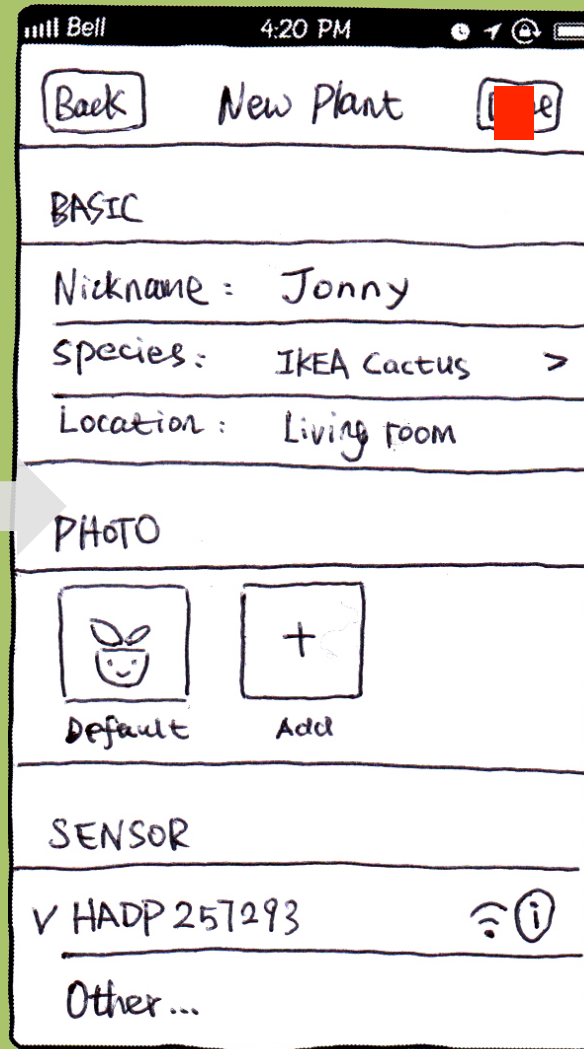 Bell 4:20 PM
Back New Plant
BASIC
Nickname: Jonny
Species: IKEA Cactus >
Location: Living room
PHOTO
+
Default Add
SENSOR
V HADP 257293 i
Other...